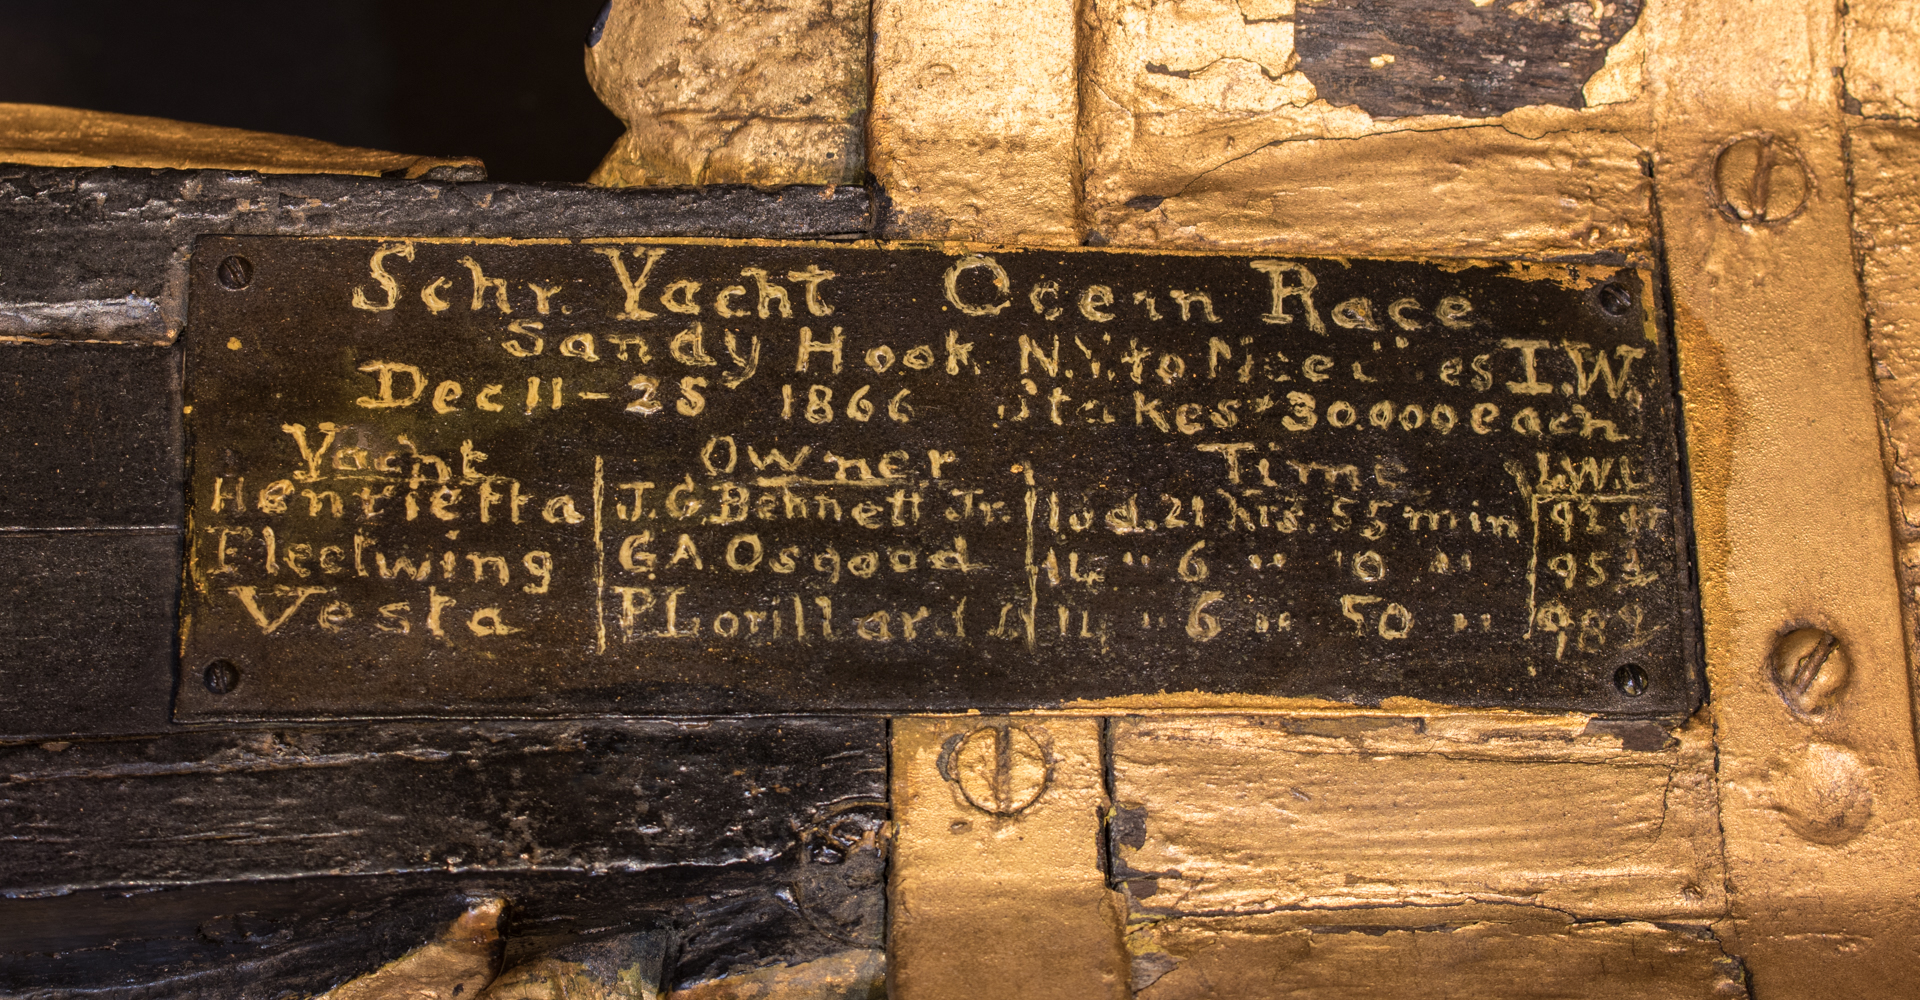 Schr. Yacht Ocean Race
Sandy Hook N.Y. to I.W.
Dec 11-25 1866 Stakes $30.000 each
Yacht Owner Time L.W.L
Henrietta J.G. Bennett Jr. 13d. 21 hrs. 55 min
Fleetwing G.A Osgood 14 " 6 " 10 " 
Vesta P Lorillard 14 " 6 " 50 "